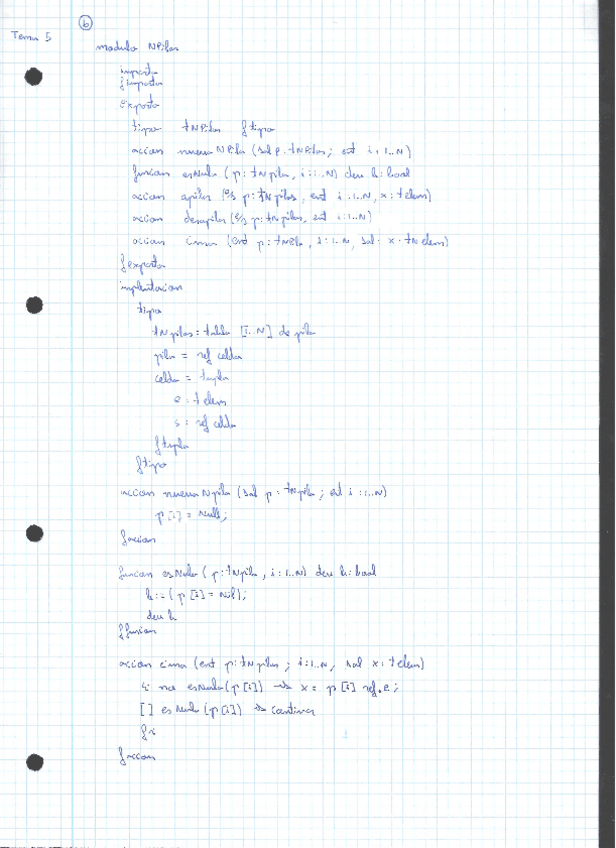 6
Tema 5
modulo NPilas
importa
fimporta
exporta
tipo tNPilas ftipo
accion nuevaNPila (sal p: tNPilas; ent i: 1..N)
funcion esNula (p: tNpila, i:1..N) dev b: bool
accion apilar (e/s p: tNpilas, ent i: 1..N, x: telem)
accion desapilar (e/s p: tNpilas, ent i:1..N)
accion cima (ent p: tNPila, i: 1..N, sal x: tNelem)
fexporta
implentacion
tipo
tNpilas = tabla [1..N] de pila
pila = ref celda
celda = tupla
e: telem
s: ref celda
ftupla
ftipo
accion nuevaNpila (sal p: tNpila; ent i: 1..N)
p[i] = Null;
faccion
funcion esNula (p: tNpila, i: 1..N) dev b: bool
b := (p[i] = Nil);
dev b
ffuncion
accion cima (ent p: tNpilas; i: 1..N, sal x: telem)
si no esNula (p[i]) → x = p[i] ref.e;
[] esNula (p[i]) → continua
fsi
faccion